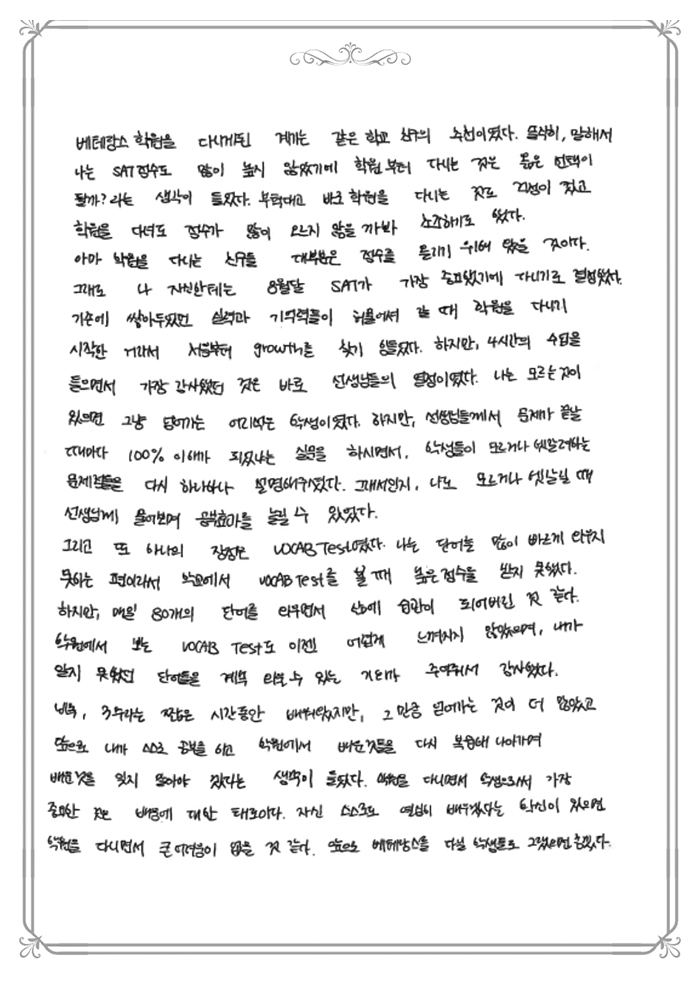 베테랑스 학원을 다니게된 계기는 같은 학교 친구의 추천이였다. 솔직히, 말해서
나는 SAT 점수도 많이 높지 않았기에 학원부터 다니는 것은 옳은 선택이
될까? 라는 생각이 들었다. 부딪대고 바로 학원을 다니는 것도 걱정이 됐고
학원을 다녀도 점수가 많이 오르지 않을 까봐 초조하기도 했다.
아마 학원을 다니는 친구들 대부분은 점수를 올리기 위해 왔을 것이다.
그래도 나 자신한테는 8월달 SAT가 가장 중요했기에 다니기로 결심했다.
기존에 쌓아두었던 실력과 기억력들이 허물어져 갈 때 학원을 다니기
시작한 거라서 처음부터 growth를 찾기 힘들었다. 하지만, 4시간의 수업을
들으면서 가장 감사했던 것은 바로 선생님들의 열정이였다. 나는 모르는것이
있으면 그냥 넘어가는 어리석은 학생이였다. 하지만, 선생님들께서 문제가 끝날
때마다 100% 이해가 되었냐는 질문을 하시면서, 학생들이 모르거나 헷갈려하는
문제점들을 다시 하나하나 설명해주셨다. 그래서인지, 나도 모르거나 헷갈릴 때
선생님께 물어보며 공부효과를 늘릴 수 있었다.
그리고 또 하나의 장점은 VOCAB Test였다. 나는 단어를 많이 빠르게 외우지
못하는 편이라서 학교에서 VOCAB Test를 볼 때 높은 점수를 받지 못했다.
하지만, 매일 80개의 단어를 외우면서 손에 습관이 되어버린 것 같다.
학원에서 보는 VOCAB Test도 이젠 어렵게 느껴지지 않았으며, 내가
알지 못했던 단어들을 계속 외울 수 있는 기회가 주어져서 감사했다.
비록, 3주라는 짧은 시간동안 배워왔지만, 그만큼 얻어가는 것이 더 많았고
앞으로 내가 스스로 공부를 하고 학원에서 배운것들을 다시 복습해 나아가며
배운것을 잊지 말아야 겠다는 생각이 들었다. 학원을 다니면서 학생으로서 가장
중요한 것은 배움에 대한 태도이다. 자신 스스로도 열심히 배우겠다는 확신이 있으면
학원을 다니면서 큰 어려움이 없을 것 같다. 앞으로 베테랑스를 다닐 학생들도 그랬으면 좋겠다.